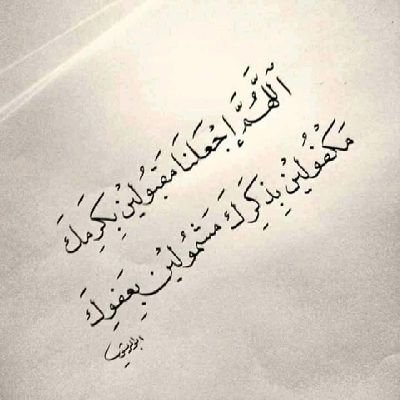 اَللَّهُمَّ إِجْعَلنَا مَقبُولِينْ بِكَرِمَكَ
مَكْفُولِينْ بِذِكِرِكَ مَشْمُولِينْ بِعَفوِكَ